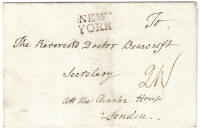 NEW
YORK
To
The Reverend Doctor Bearcroft
Secretary
att the Charter House
London